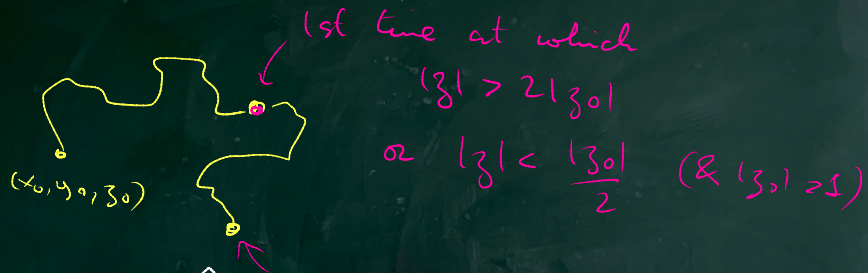 1st time at which
|z| > 2|z0|
or |z| < |z0|/2 (& |z0| ≥ 1)
(x0, y0, z0)